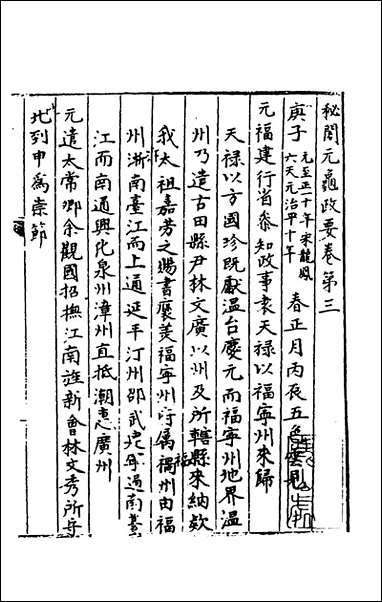 秘閣元龜政要卷第三
庚子
元至正二十年宋龍鳳
六天元治平十年
春正月丙辰五色雲見
元福建行省參知政事袁天祿以福寧州來歸
天祿以方國珍既獻溫台慶元而福寧州地界溫
州乃遣古田縣尹林文廣以州及所轄縣來納欵
我太祖嘉劳之賜書褒美福寧州行属福州由福
州浙南臺江而上通延平汀州邵武北年過南臺
江而南通興化泉州漳州直抵潮惠廣州
元遣太常卿余觀國招撫江南誰新會林文秀所守
北列申為崇節